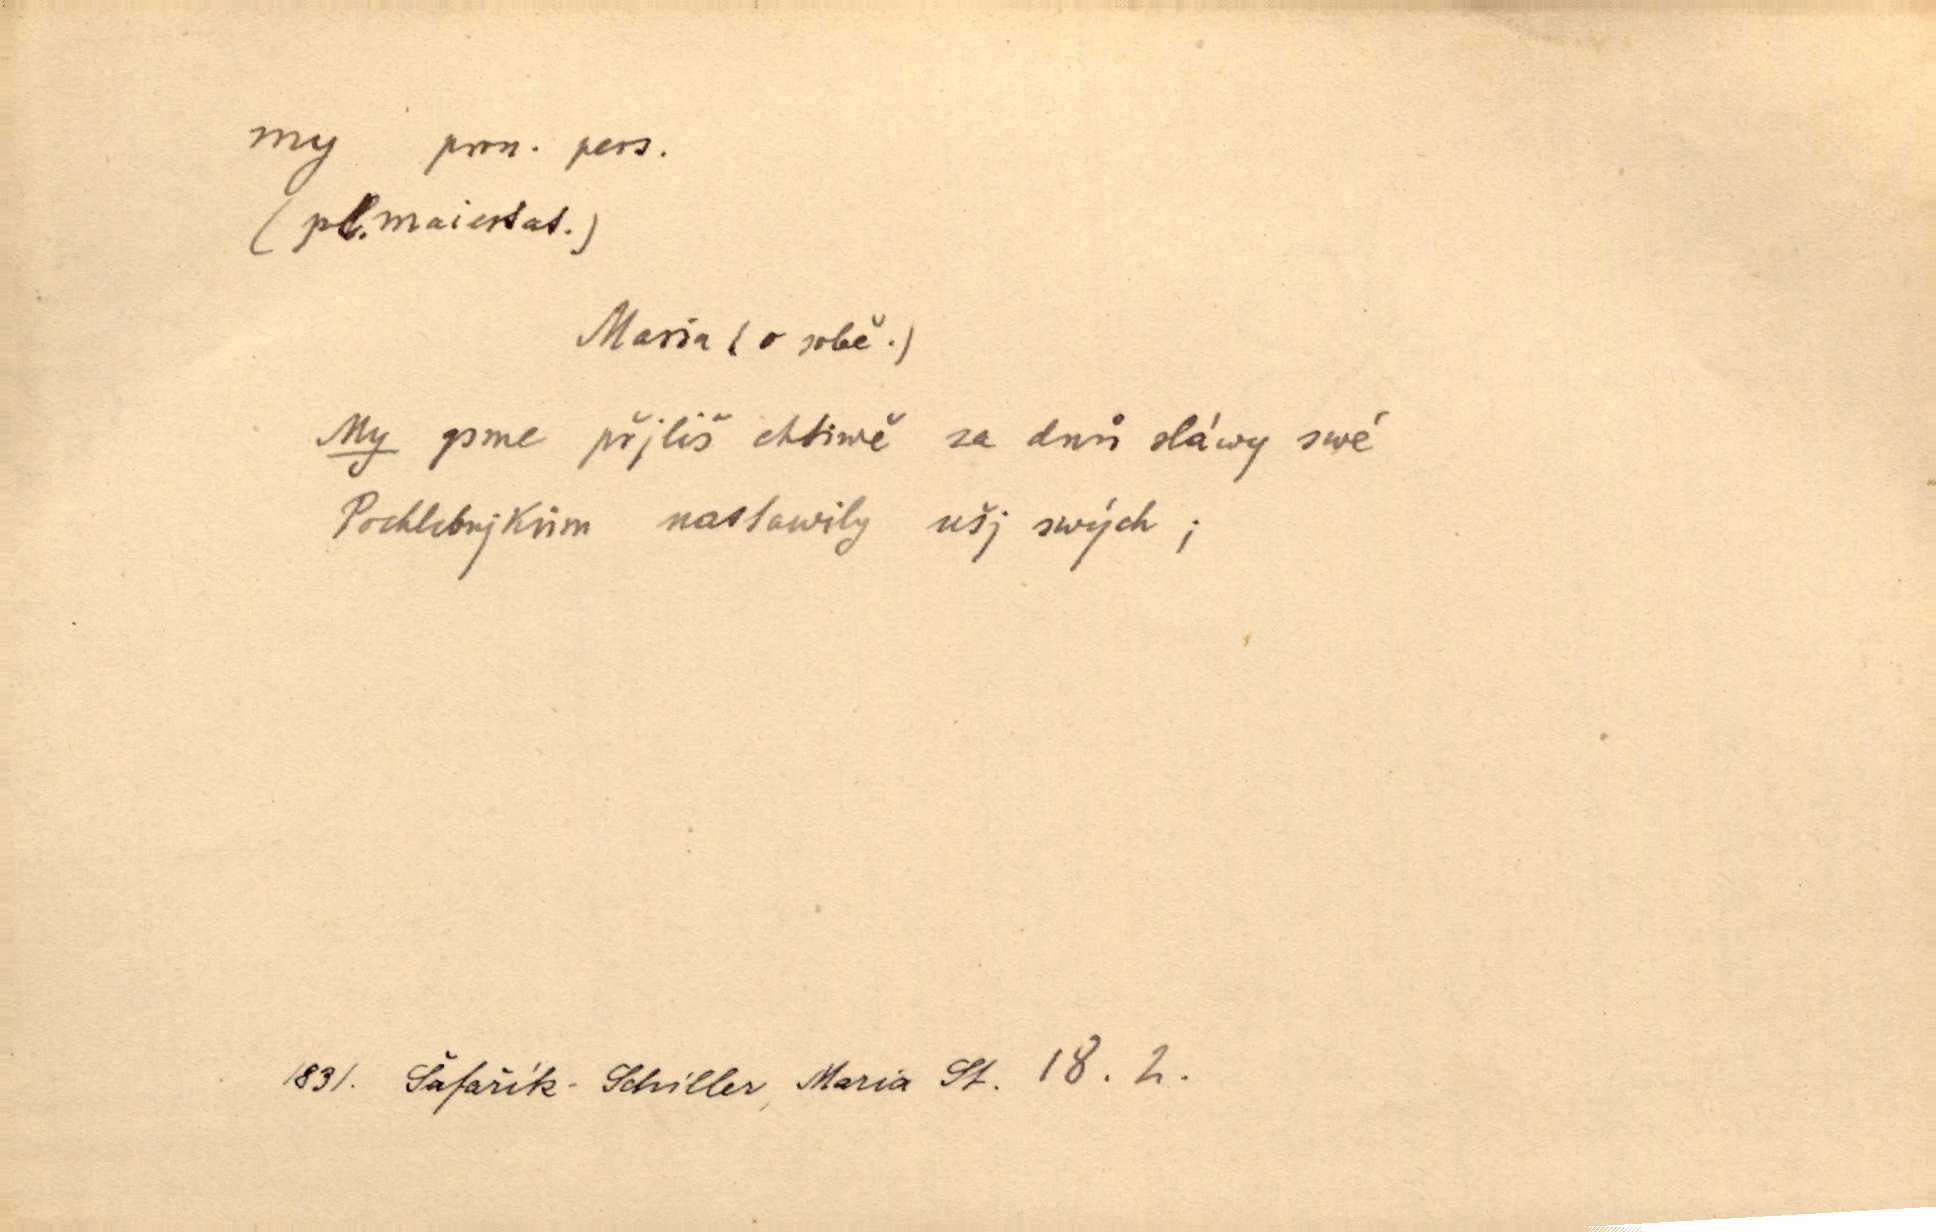 my pron. pers.
(pl. maiestat.)
Maria (o sobě.)
My gsme přjliš chtiwě za dnů sláwy swé
Pochlebnjkům nastawily ušj swých ;
1831. Šafařík - Schiller, Maria St. 18. 2.